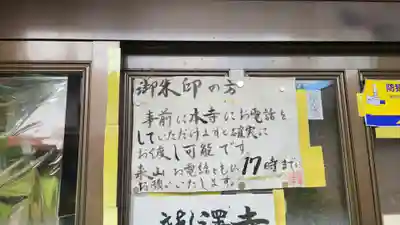 御朱印の方
事前に本寺にお電話を
していただけますと確実に
お渡し可能です。
来山、お電話ともに17時まで
お願いいたします。
澤寺
防犯